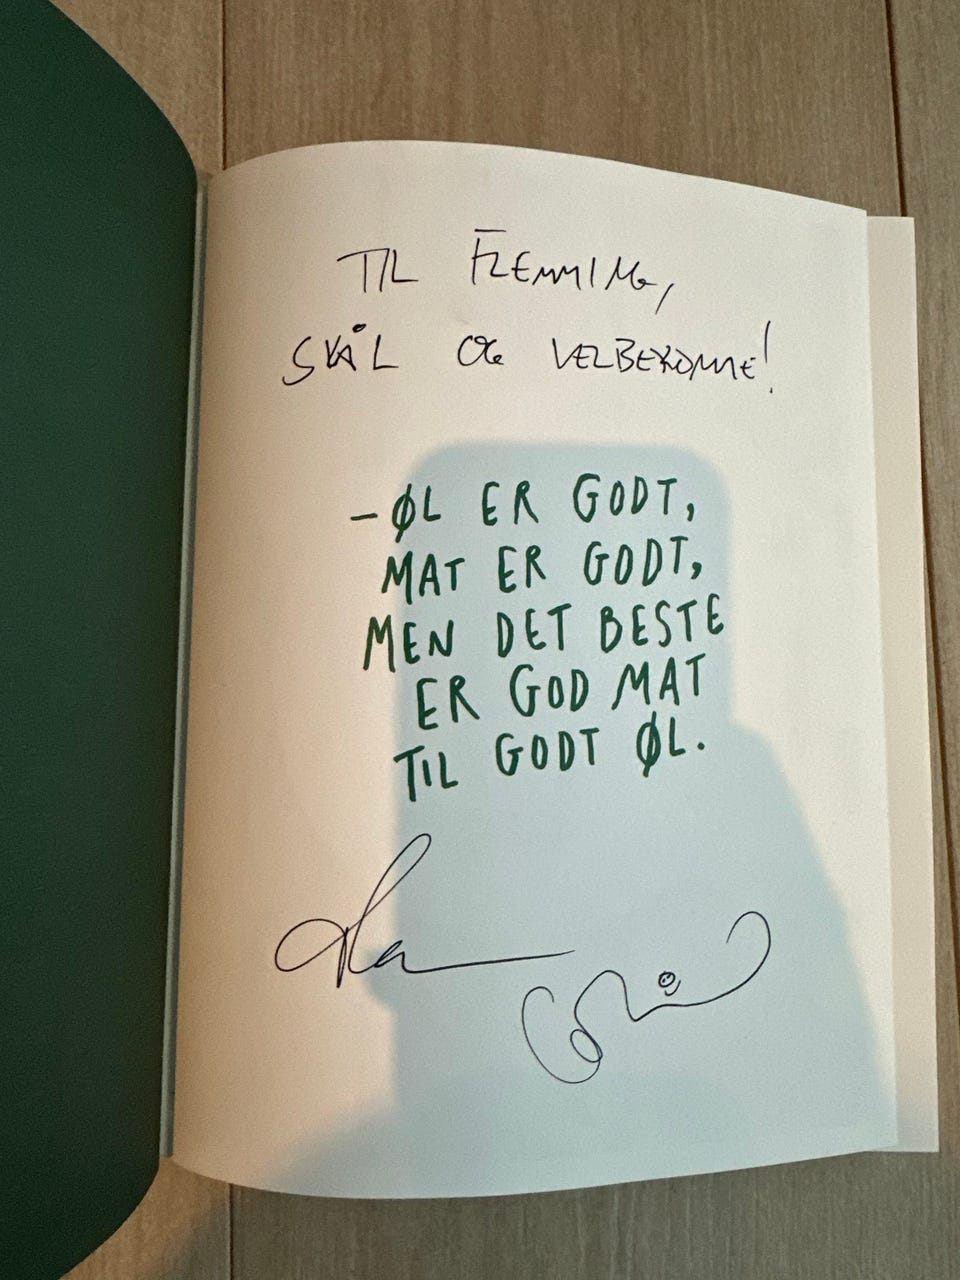 TIL FLEMMING,
SKÅL OG VELBEKOMME!
- ØL ER GODT,
MAT ER GODT,
MEN DET BESTE
ER GOD MAT
TIL GODT ØL.